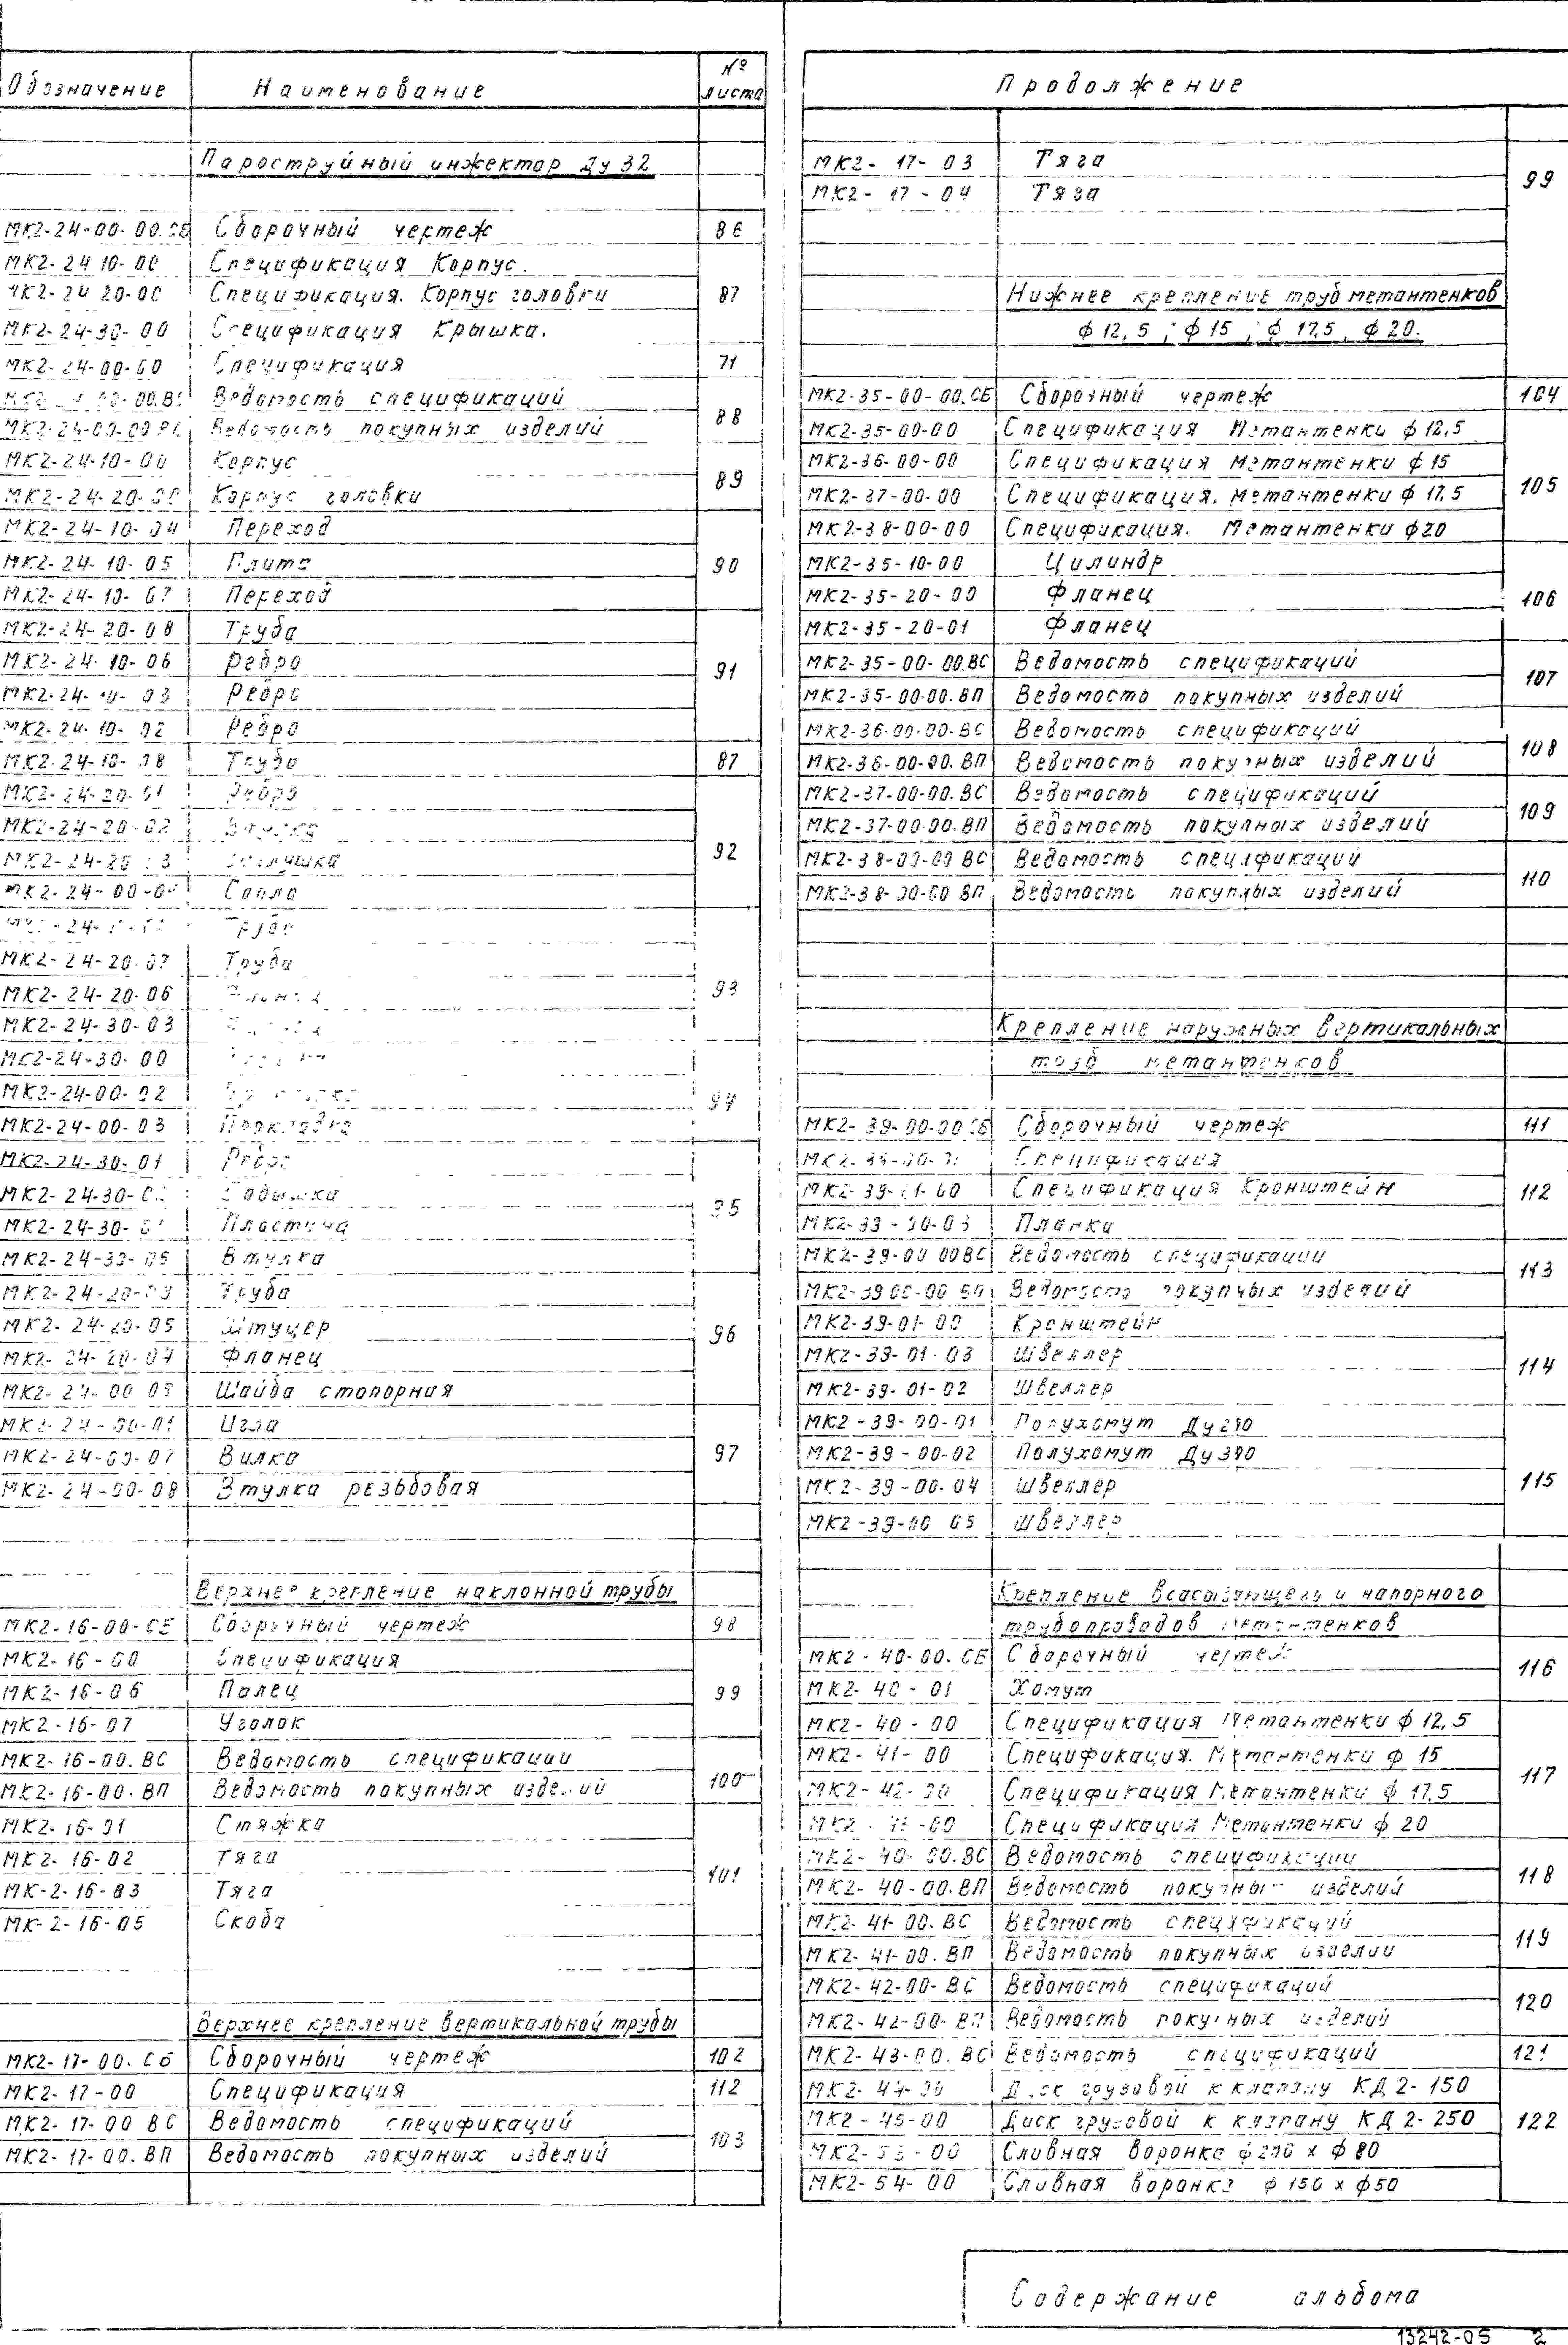 Обозначение Наименование № листа
Пароструйный инжектор Ду 32
МК2-24-00-00.СБ Сборочный чертеж 86
МК2-24 10-00 Спецификация Корпус.
МК2-24 20-00 Спецификация. Корпус головки 87
МК2-24-30-00 Спецификация Крышка.
МК2-24-00-00 Спецификация 71
Ведомость спецификаций
МК2-24-00-00 Ведомость покупных изделий 88
МК2-24-10-00 Корпус
МК2-24-20-00 Корпус головки 89
МК2-24-10-04 Переход
МК2-24-10-05 Плита 90
МК2-24-10-07 Переход
МК2-24-20-08 Труба
МК2-24-10-06 Ребро 91
МК2-24-10-03 Ребро
МК2-24-10-02 Ребро
МК2-24-10-08 Труба 87
МК2-24-20-01 Ребро
МК2-24-20-02 Втулка
МК2-24-20 03 Заглушка 92
МК2-24-00-04 Сопло
Труба
МК2-24-20-07 Труба
МК2-24-20-06 93
МК2-24-30-03
МК2-24-30-00
МК2-24-00-02 94
МК2-24-00-03 Прокладка
МК2-24-30-01 Ребро
МК2-24-30- 95
МК2-24-30- Пластина
МК2-24-30-05 Втулка
МК2-24-20-09 Труба
МК2-24-20-05 Штуцер 96
МК2-24-20-04 Фланец
МК2-24-00 05 Шайба стопорная
МК2-24-00-01 Игла
МК2-24-00-07 Вилка 97
МК2-24-00-08 Втулка резьбовая
Верхнее крепление наклонной трубы
МК2-16-00-СБ Сборочный чертеж 98
МК2-16-00 Спецификация
МК2-16-06 Палец 99
МК2-16-07 Уголок
МК2-16-00.ВС Ведомость спецификации
МК2-16-00.ВП Ведомость покупных изделий 100
МК2-16-01 Стяжка
МК2-16-02 Тяга 101
МК-2-16-03 Тяга
МК-2-16-05 Скоба
Верхнее крепление вертикальной трубы
МК2-17-00.СБ Сборочный чертеж 102
МК2-17-00 Спецификация 112
МК2-17-00 ВС Ведомость спецификаций
МК2-17-00.ВП Ведомость покупных изделий 103
Продолжение
МК2-17-03 Тяга
МК2-17-04 Тяга 99
Нижнее крепление труб метантенков
ф 12,5 ; ф 15 ; ф 17,5, ф 20.
МК2-35-00-00.СБ Сборочный чертеж 104
МК2-35-00-00 Спецификация Метантенки ф 12,5
МК2-36-00-00 Спецификация Метантенки ф 15
МК2-37-00-00 Спецификация. Метантенки ф 17,5 105
МК2-38-00-00 Спецификация. Метантенки ф20
МК2-35-10-00 Цилиндр
МК2-35-20-00 Фланец 106
МК2-35-20-01 Фланец
МК2-35-00-00.ВС Ведомость спецификаций
МК2-35-00-00.ВП Ведомость покупных изделий 107
МК2-36-00-00-ВС Ведомость спецификаций
МК2-36-00-00.ВП Ведомость покупных изделий 108
МК2-37-00-00.ВС Ведомость спецификаций
МК2-37-00-00.ВП Ведомость покупных изделий 109
МК2-38-00-00 ВС Ведомость спецификаций
МК2-38-00-00 ВП Ведомость покупных изделий 110
Крепление наружных вертикальных
труб метантенков
МК2-39-00-00 СБ Сборочный чертеж 111
МК2-39-00- Спецификация
МК2-39-01-00 Спецификация Кронштейн 112
МК2-39-00-03 Планка
МК2-39-00 00ВС Ведомость спецификации
МК2-39 00-00 ВП Ведомость покупных изделий 113
МК2-39-01-00 Кронштейн
МК2-39-01-03 Швеллер 114
МК2-39-01-02 Швеллер
МК2-39-00-01 Полухомут Ду 200
МК2-39-00-02 Полухомут Ду 300
МК2-39-00-04 Швеллер 115
МК2-39-00 05 Швеллер
Крепление всасывающего и напорного
трубопроводов метантенков
МК2-40-00.СБ Сборочный чертеж
МК2-40-01 Хомут 116
МК2-40-00 Спецификация Метантенки ф 12,5
МК2-41-00 Спецификация. Метантенки ф 15
МК2-42-00 Спецификация Метантенки ф 17,5 117
МК2-43-00 Спецификация Метантенки ф 20
МК2-40-00.ВС Ведомость спецификации
МК2-40-00.ВП Ведомость покупных изделий 118
МК2-41-00.ВС Ведомость спецификаций
МК2-41-00.ВП Ведомость покупных изделий 119
МК2-42-00-ВС Ведомость спецификаций
МК2-42-00-ВП Ведомость покупных изделий 120
МК2-43-00.ВС Ведомость спецификаций 121
МК2-44-00 Диск грузовой к клапану КД 2-150
МК2-45-00 Диск грузовой к клапану КД 2-250 122
МК2-53-00 Сливная воронка ф200 х ф 80
МК2-54-00 Сливная воронка ф 150 х ф50
Содержание альбома
13242-05 2